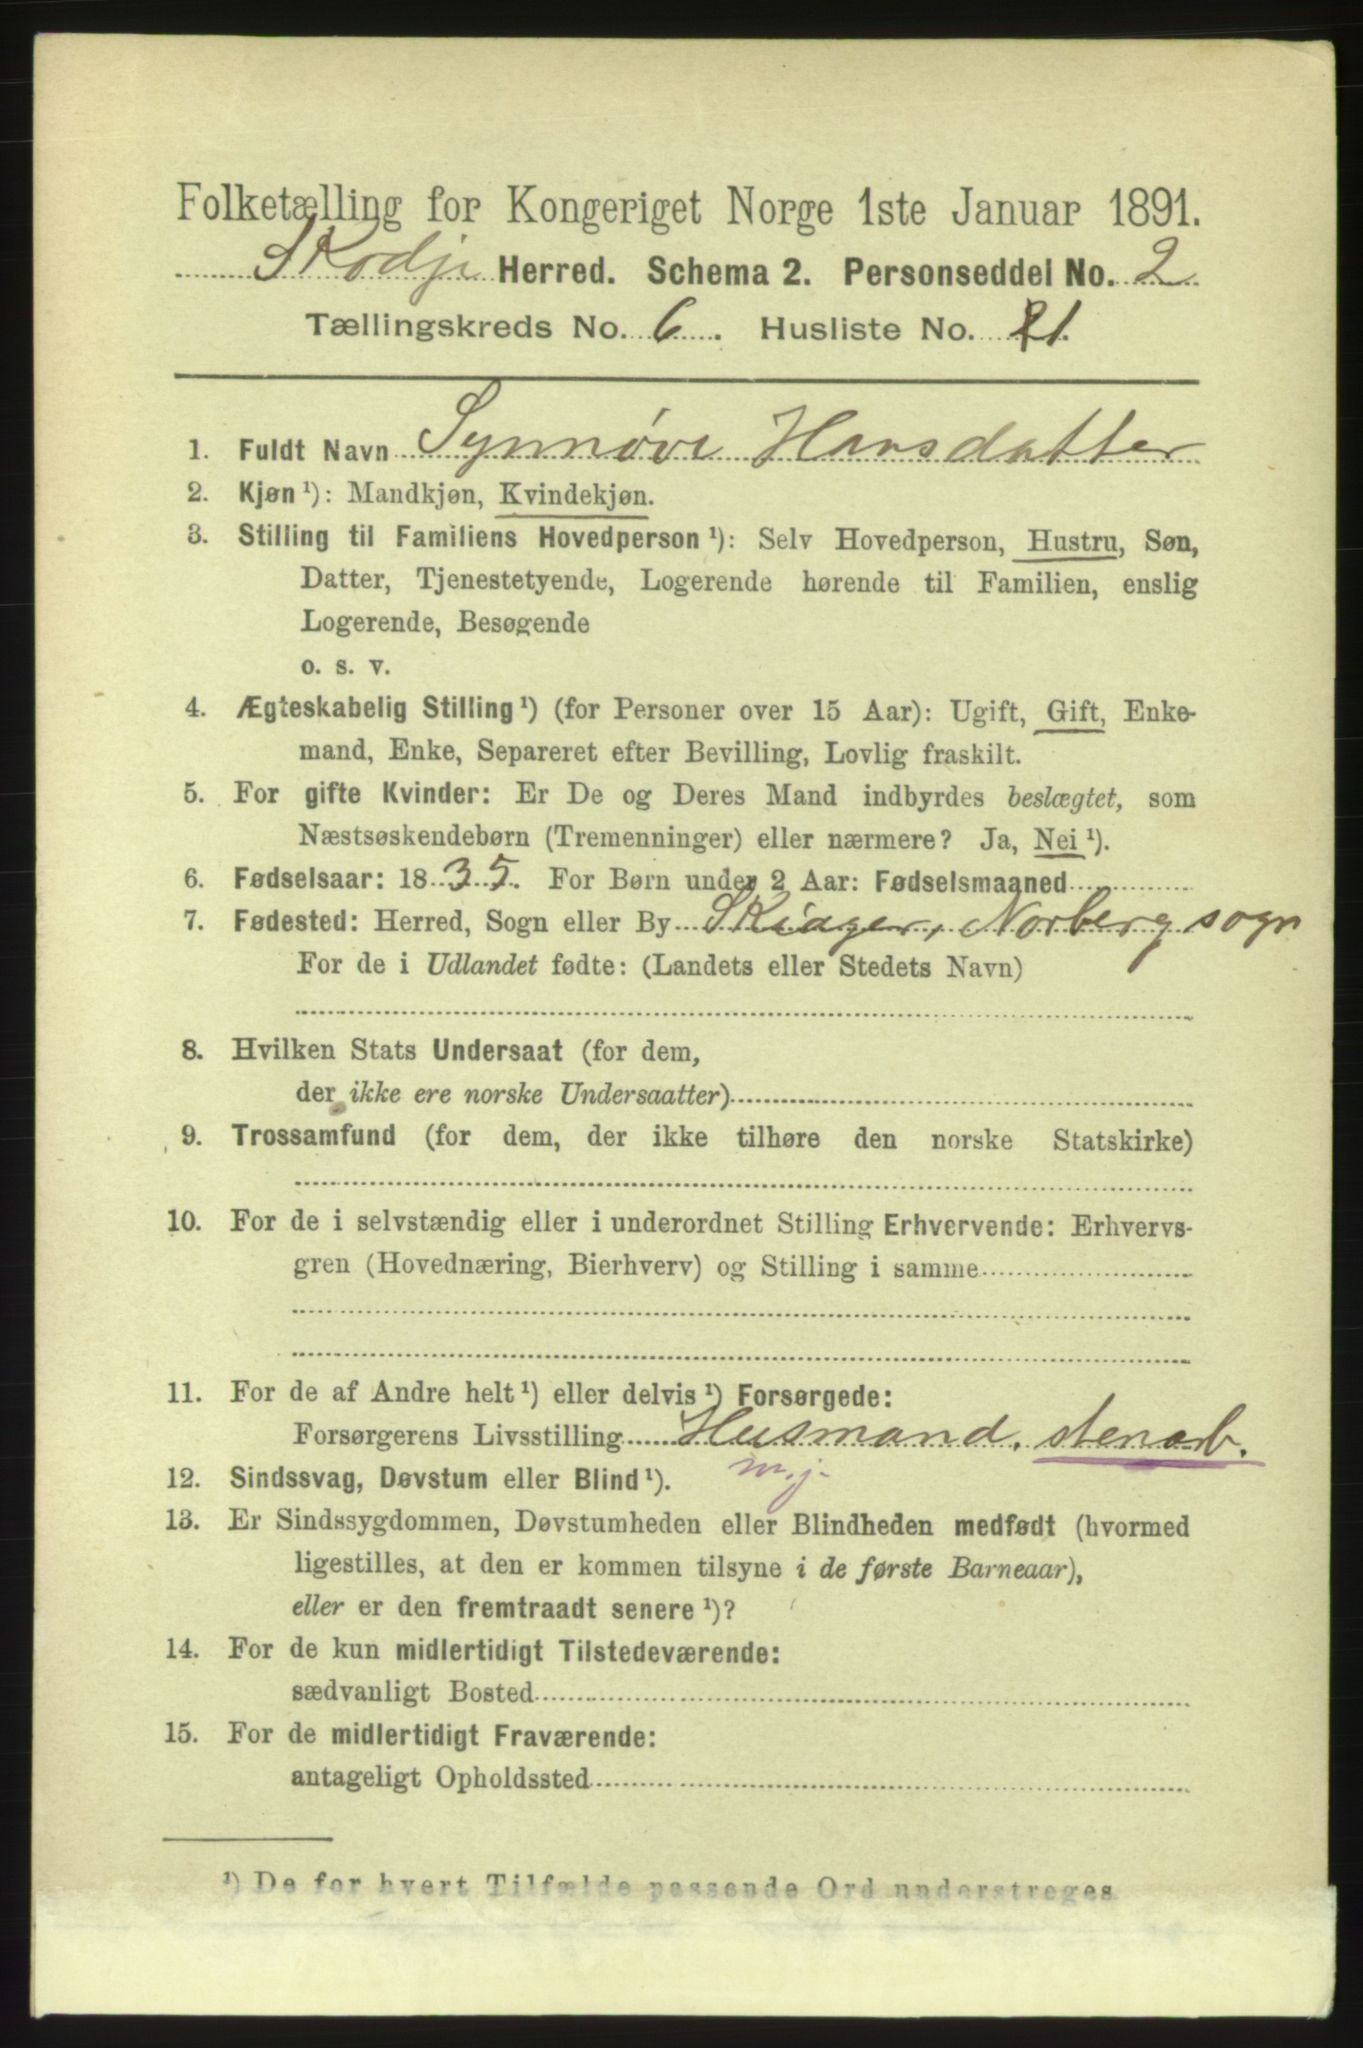 Folketælling for Kongeriget Norge 1ste Januar 1891.
Skodje Herred. Schema 2. Personseddel No. 2
Tællingskreds No. 6. Husliste No. 21.
1. Fuldt Navn Synnøve Hansdatter
2. Kjøn ¹): Mandkjøn, Kvindekjøn.
3. Stilling til Familiens Hovedperson ¹): Selv Hovedperson, Hustru, Søn,
Datter, Tjenestetyende, Logerende hørende til Familien, enslig
Logerende, Besøgende
o. s. v.
4. Ægteskabelig Stilling ¹) (for Personer over 15 Aar): Ugift, Gift, Enke-
mand, Enke, Separeret efter Bevilling, Lovlig fraskilt.
5. For gifte Kvinder: Er De og Deres Mand indbyrdes beslægtet, som
Næstsøskendebørn (Tremenninger) eller nærmere? Ja, Nei ¹).
6. Fødselsaar: 1835. For Børn under 2 Aar: Fødselsmaaned
7. Fødested: Herred, Sogn eller By Skiager, Norberg sogn
For de i Udlandet fødte: (Landets eller Stedets Navn)
8. Hvilken Stats Undersaat (for dem,
der ikke ere norske Undersaatter)
9. Trossamfund (for dem, der ikke tilhøre den norske Statskirke)
10. For de i selvstændig eller i underordnet Stilling Erhvervende: Erhvervs-
gren (Hovednæring, Bierhverv) og Stilling i samme
11. For de af Andre helt ¹) eller delvis ¹) Forsørgede:
Forsørgerens Livsstilling Husmand. stenarb.
m.j.
12. Sindssvag, Døvstum eller Blind ¹).
13. Er Sindssygdommen, Døvstumheden eller Blindheden medfødt (hvormed
ligestilles, at den er kommen tilsyne i de første Barneaar),
eller er den fremtraadt senere ¹)?
14. For de kun midlertidigt Tilstedeværende:
sædvanligt Bosted
15. For de midlertidigt Fraværende:
antageligt Opholdssted
¹) De for hvert Tilfælde passende Ord understreges